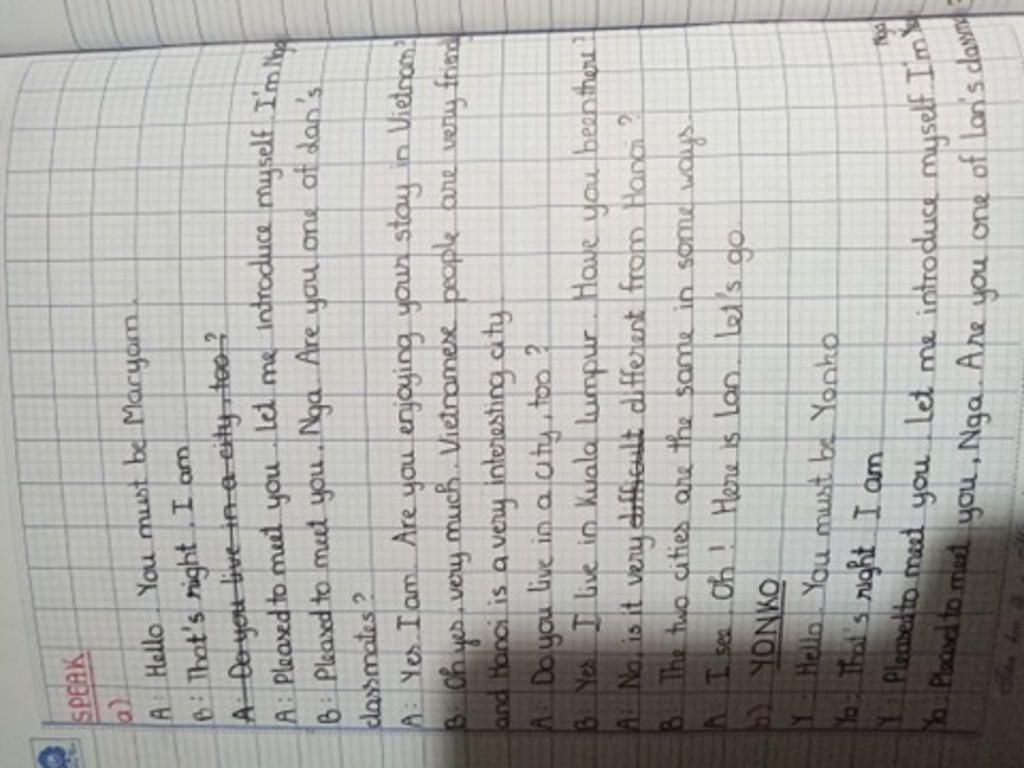 SPEAK
a)
A: Hello. You must be Maryam.
B: That's right. I am
A: Do you live in a city, too?
A: Pleased to meet you. Let me introduce myself. I'm Nga
B: Pleased to meet you, Nga. Are you one of Lan's
classmates?
A: Yes. I am. Are you enjoying your stay in Vietnam?
B: Oh yes, very much. Vietnamese people are very friend
and Hanoi is a very interesting city
A: Do you live in a city, too?
B: Yes. I live in Kuala Lumpur. Have you been there?
A: No, is it very difficult different from Hanoi?
B: The two cities are the same in some ways.
A: I see. Oh! Here is Lan. Let's go.
b) YONKO
Y: Hello. You must be Yonko
Yo: That's right I am
Nga
Y: Pleased to meet you. Let me introduce myself. I'm
Yo: Pleased to meet you, Nga. Are you one of Lan's